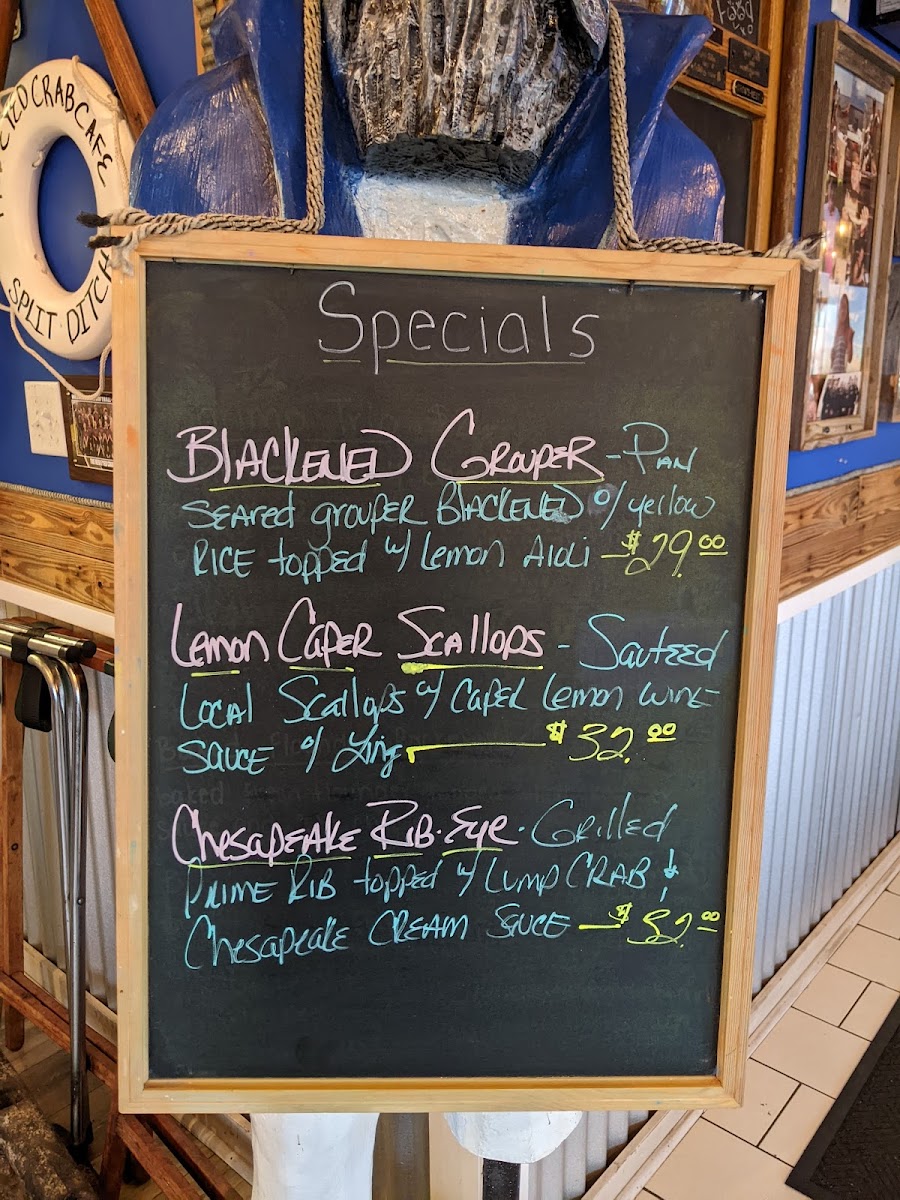 CRAB CAFE
SPLIT DITCH
Specials
BLACKENED GROUPER - PAN
SEARED grouper BLACKENED w/ yellow
RICE topped w/ Lemon AIOLI $29.00
Lemon CAPER SCALLOPS - SAUTEED
LOCAL Scallops w/ CAPER Lemon WINE
SAUCE w/ Ling $32.00
Chesapeake RIB-Eye - Grilled
PRIME RIB topped w/ LUMP CRAB &
Chesapeake CREAM SAUCE $32.00